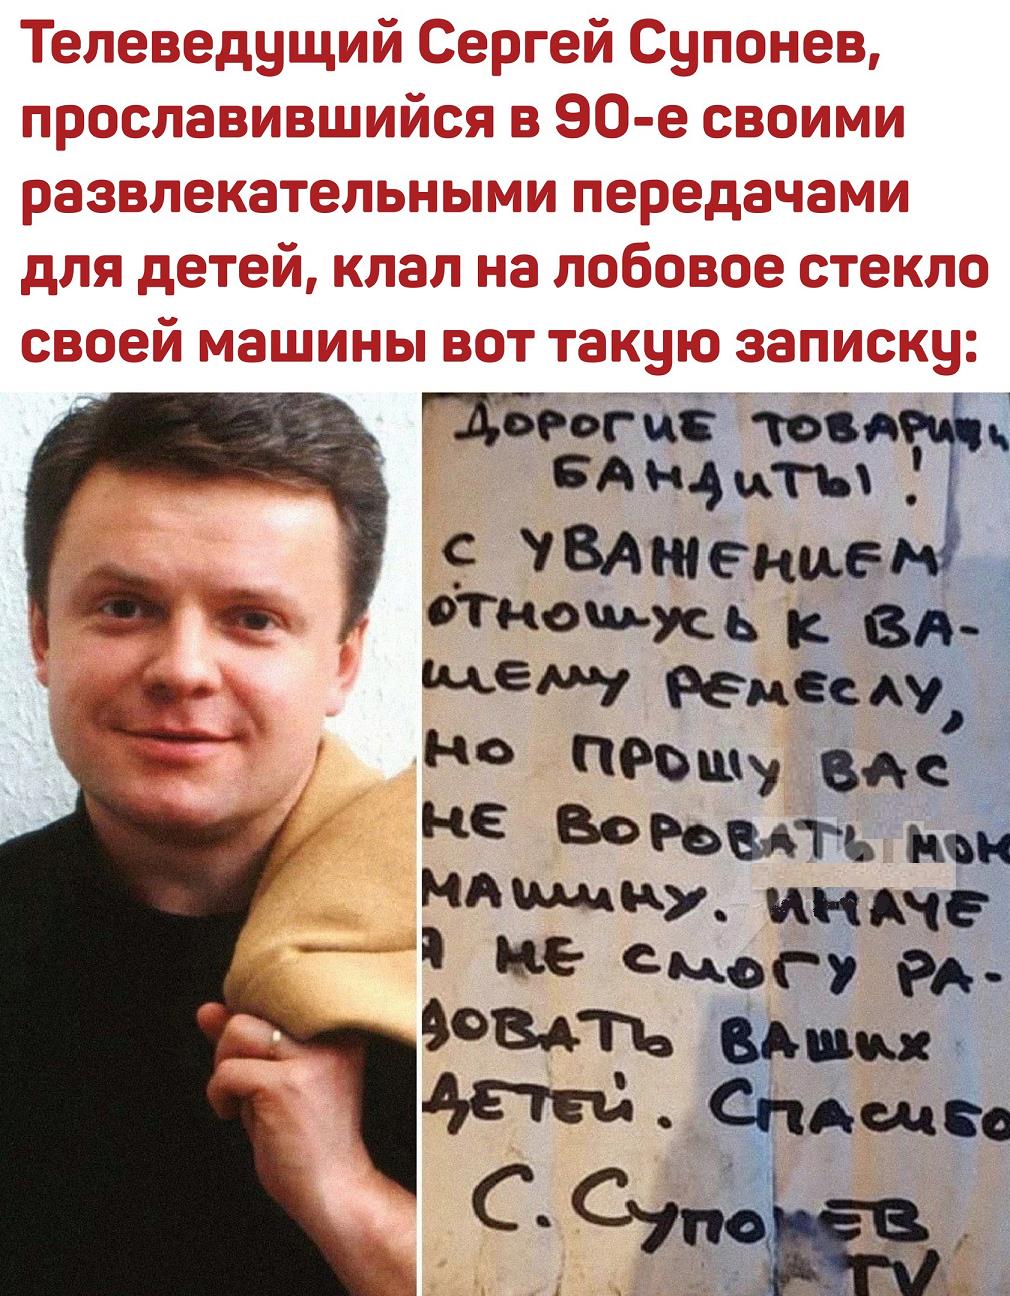 Телеведущий Сергей Супонев,
прославившийся в 90-е своими
развлекательными передачами
для детей, клал на лобовое стекло
своей машины вот такую записку:
ДОРОГИЕ ТОВАРИЩИ
БАНДИТЫ!
С УВАЖЕНИЕМ
ОТНОШУСЬ К ВА-
ШЕМУ РЕМЕСЛУ,
НО ПРОШУ ВАС
НЕ ВОРОВАТЬ МОЮ
МАШИНУ. ИНАЧЕ
Я НЕ СМОГУ РА-
ДОВАТЬ ВАШИХ
ДЕТЕЙ. СПАСИБО
С. Супонев
TV